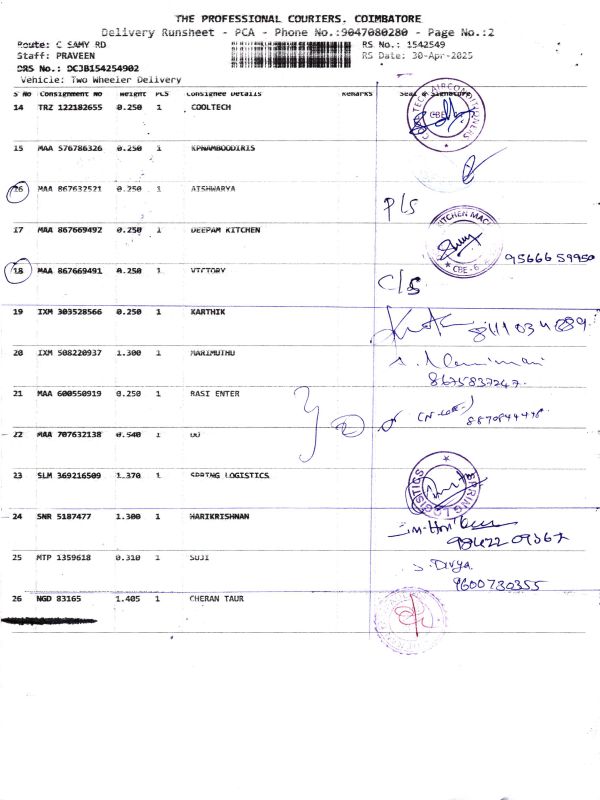 THE PROFESSIONAL COURIERS. COIMBATORE
Delivery Runsheet - PCA - Phone No.:9047080280 - Page No.:2
Route: C SAMY RD RS No.: 1542549
Staff: PRAVEEN RS Date: 30-Apr-2025
DRS No.: DCJB154254902
Vehicle: Two Wheeler Delivery
S No Consignment No Weight PCS Consignee Details Remarks Seal & Signature
14 TRZ 122182655 0.250 1 COOLTECH
15 MAA 576786326 0.250 1 KPNAMBOODIRIS
16 MAA 867632521 0.250 1 AISHWARYA P/S
17 MAA 867669492 0.250 1 DEEPAM KITCHEN 9566659950
18 MAA 867669491 0.250 1 VICTORY C/S
19 IXM 303528566 0.250 1 KARTHIK
20 IXM 508220937 1.300 1 MARIMUTHU
8675837247
21 MAA 600550919 0.250 1 RASI ENTER
22 MAA 707632138 0.540 1
23 SLM 369216509 1.370 1 SPRING LOGISTICS
SPRING LOGISTICS
24 SNR 5187477 1.300 1 HARIKRISHNAN
25 MTP 1359618 0.310 1 SUJI S. Divya
9600730355
26 NGD 83165 1.405 1 CHERAN TAUR